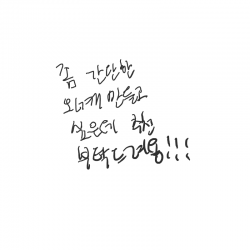 좀 간단한
오너캐 만들고
싶은데 추천
부탁드려용!!!